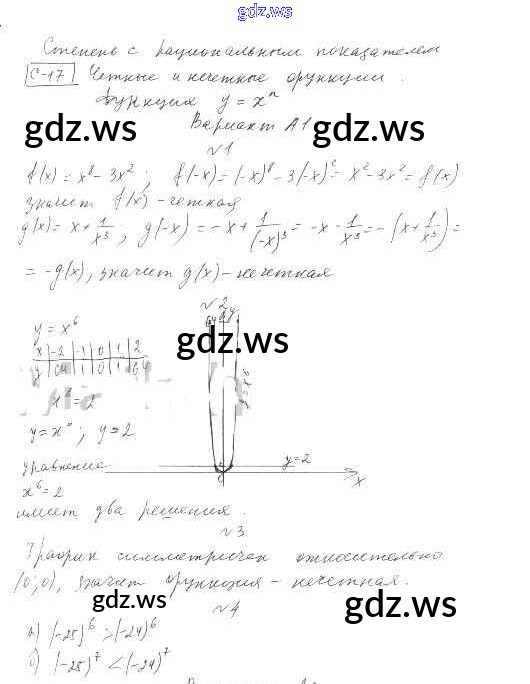 gdz.ws
Степень с рациональным показателем
С-17 Четные и нечетные функции.
Функция y = xⁿ
gdz.ws gdz.ws
Вариант А1
№1
f(x) = x⁸ - 3x² ; f(-x) = (-x)⁸ - 3(-x)² = x² - 3x² = f(x)
значит f(x) - четная
g(x) = x + 1/x³ , g(-x) = -x + 1/(-x)³ = -x - 1/x³ = -(x + 1/x³) =
= -g(x), значит g(x) - нечетная
№2
y = x⁶
gdz.ws
x -2 -1 0 1 2
y 64 1 0 1 64
64 y
y = x⁶
y = 2
уравнение
y=2
x
x⁶ = 2
имеет два решения.
№3
График симметричен относительно
(0;0), значит функция - нечетная.
gdz.ws gdz.ws
№4
а) (-25)⁶ > (-24)⁶
б) (-25)⁷ < (-24)⁷